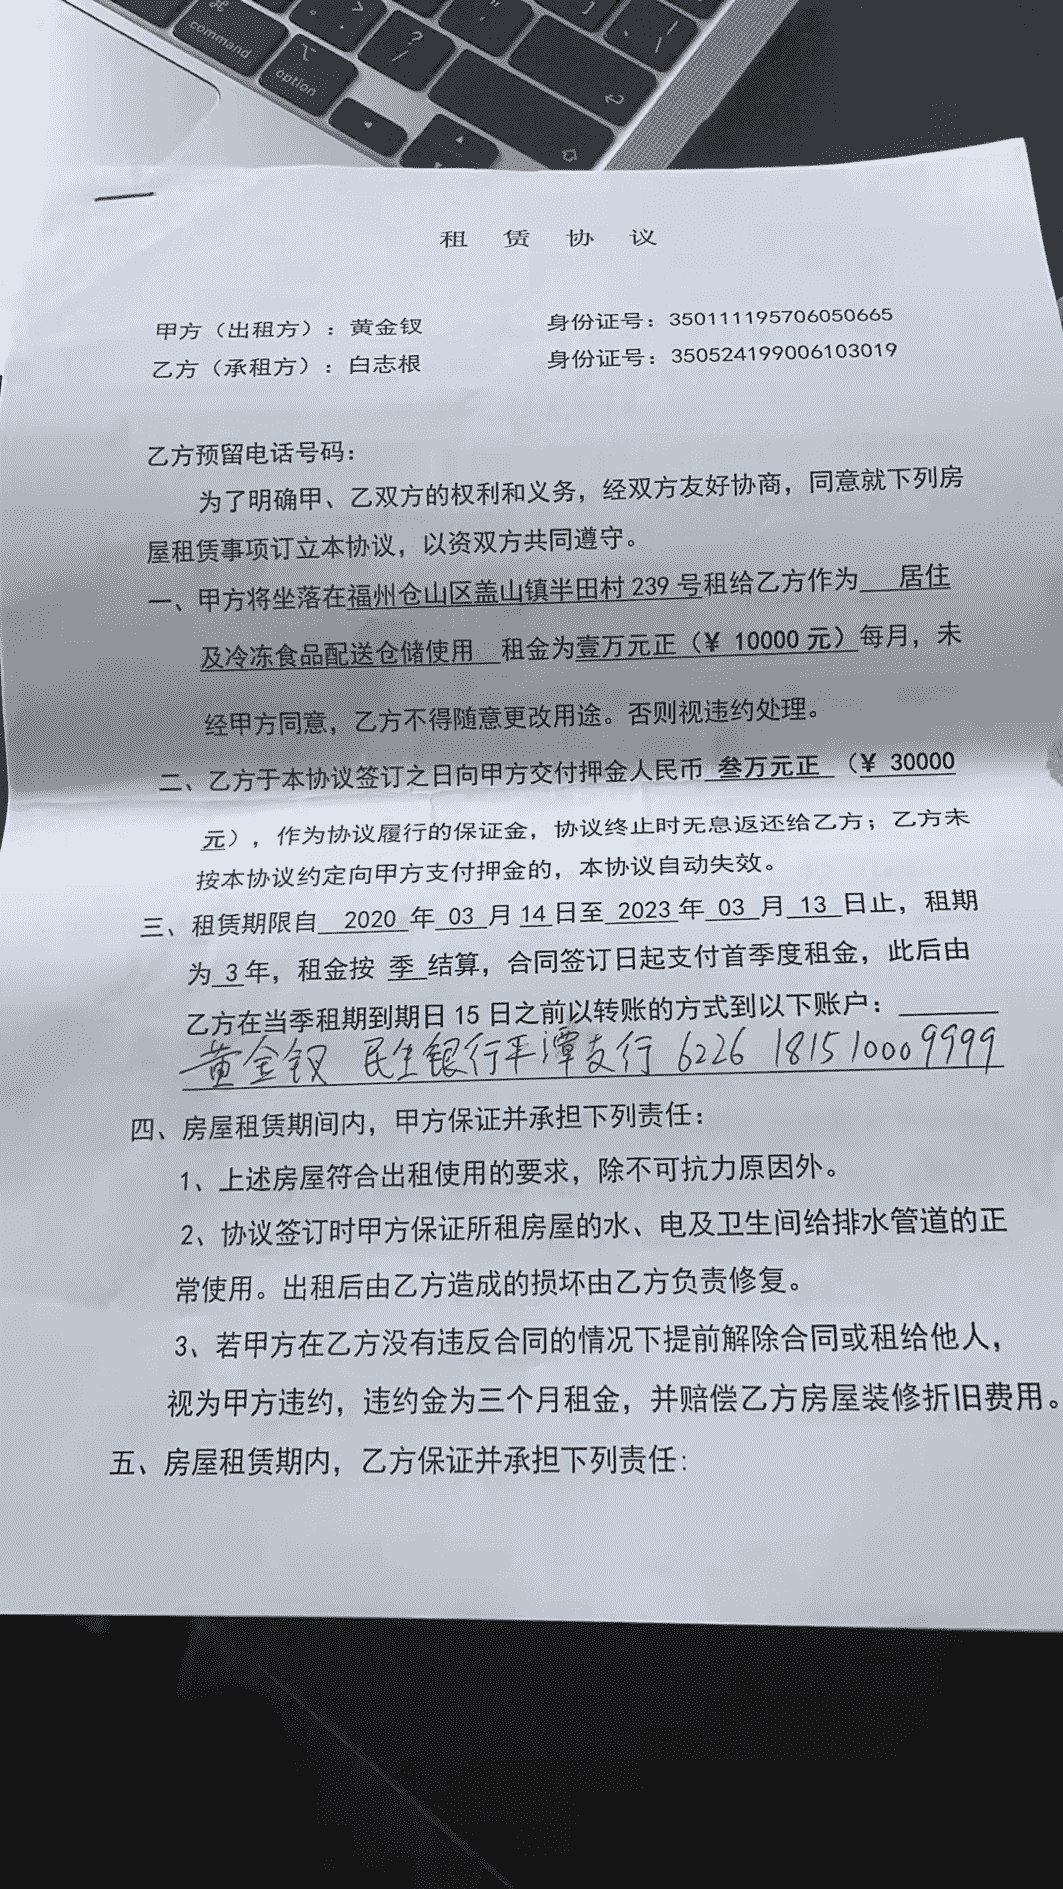 command
option
租 赁 协 议
甲方（出租方）：黄金钗 身份证号：350111195706050665
乙方（承租方）：白志根 身份证号：350524199006103019
乙方预留电话号码：
为了明确甲、乙双方的权利和义务，经双方友好协商，同意就下列房
屋租赁事项订立本协议，以资双方共同遵守。
一、甲方将坐落在福州仓山区盖山镇半田村 239 号租给乙方作为 居住
及冷冻食品配送仓储使用 租金为壹万元正（¥ 10000 元）每月，未
经甲方同意，乙方不得随意更改用途。否则视违约处理。
二、乙方于本协议签订之日向甲方交付押金人民币 叁万元正 （¥ 30000
元），作为协议履行的保证金，协议终止时无息返还给乙方；乙方未
按本协议约定向甲方支付押金的，本协议自动失效。
三、租赁期限自 2020 年 03 月 14 日至 2023 年 03 月 13 日止，租期
为 3 年，租金按 季 结算，合同签订日起支付首季度租金，此后由
乙方在当季租期到期日 15 日之前以转账的方式到以下账户：
黄金钗 民生银行平潭支行 6226 1815 1000 9999
四、房屋租赁期间内，甲方保证并承担下列责任：
1、上述房屋符合出租使用的要求，除不可抗力原因外。
2、协议签订时甲方保证所租房屋的水、电及卫生间给排水管道的正
常使用。出租后由乙方造成的损坏由乙方负责修复。
3、若甲方在乙方没有违反合同的情况下提前解除合同或租给他人，
视为甲方违约，违约金为三个月租金，并赔偿乙方房屋装修折旧费用。
五、房屋租赁期内，乙方保证并承担下列责任：